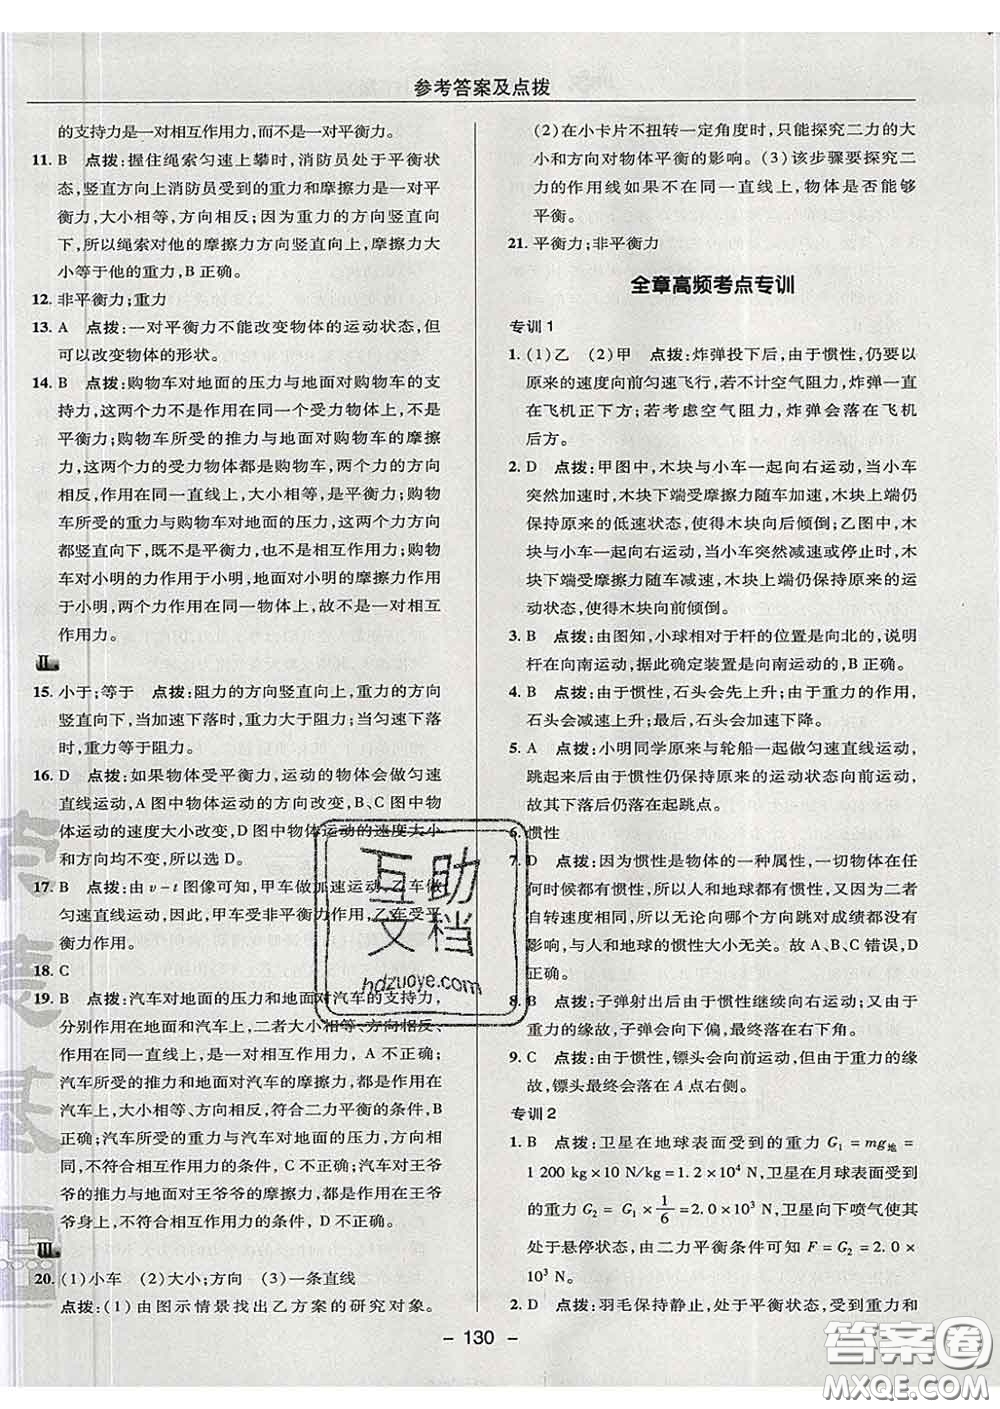 参考答案及点拨
的支持力是一对相互作用力,而不是一对平衡力。
11. B 点拨:握住绳索匀速上攀时,消防员处于平衡状
态,竖直方向上消防员受到的重力和摩擦力是一对平
衡力,大小相等,方向相反;因为重力的方向竖直向
下,所以绳索对他的摩擦力方向竖直向上,摩擦力大
小等于他的重力,B 正确。
12. 非平衡力;重力
13. A 点拨:一对平衡力不能改变物体的运动状态,但
可以改变物体的形状。
14. B 点拨:购物车对地面的压力与地面对购物车的支
持力,这两个力不是作用在同一个受力物体上,不是
平衡力;购物车所受的推力与地面对购物车的摩擦
力,这两个力的受力物体都是购物车,两个力的方向
相反,作用在同一直线上,大小相等,是平衡力;购物
车所受的重力与购物车对地面的压力,这两个力方向
都竖直向下,既不是平衡力,也不是相互作用力;购物
车对小明的力作用于小明,地面对小明的摩擦力作用
于小明,两个力作用在同一物体上,故不是一对相互
作用力。
Ⅱ
15. 小于;等于 点拨:阻力的方向竖直向上,重力的方向
竖直向下,当加速下落时,重力大于阻力;当匀速下落
时,重力等于阻力。
16. D 点拨:如果物体受平衡力,运动的物体会做匀速
直线运动,A 图中物体运动的方向改变,B、C 图中物体
运动的速度大小改变,D 图中物体运动的速度大小
和方向均不变,所以选 D。
17. B 点拨:由 v-t 图像可知,甲车做加速运动,乙车做
匀速直线运动,因此,甲车受非平衡力作用,乙车受平
衡力作用。
18. C
19. B 点拨:汽车对地面的压力和地面对汽车的支持力,
分别作用在地面和汽车上,二者大小相等、方向相反、
作用在同一直线上,是一对相互作用力,A 不正确;
汽车所受的推力和地面对汽车的摩擦力,都是作用在
汽车上,大小相等、方向相反,符合二力平衡的条件,B
正确;汽车所受的重力与汽车对地面的压力,方向相
同,不符合相互作用力的条件,C 不正确;汽车对王爷
爷的推力与地面对王爷爷的摩擦力,都是作用在王爷
爷身上,不符合相互作用力的条件,D 不正确。
Ⅲ
20. (1)小车 (2)大小;方向 (3)一条直线
点拨:(1)由图示情景找出乙方案的研究对象。
(2)在小卡片不扭转一定角度时,只能探究二力的大
小和方向对物体平衡的影响。(3)该步骤要探究二
力的作用线如果不在同一直线上,物体是否能够
平衡。
21. 平衡力;非平衡力
全章高频考点专训
专训 1
1. (1)乙 (2)甲 点拨:炸弹投下后,由于惯性,仍要以
原来的速度向前匀速飞行,若不计空气阻力,炸弹一直
在飞机正下方;若考虑空气阻力,炸弹会落在飞机
后方。
2. D 点拨:甲图中,木块与小车一起向右运动,当小车
突然加速时,木块下端受摩擦力随车加速,木块上端仍
保持原来的低速状态,使得木块向后倾倒;乙图中,木
块与小车一起向右运动,当小车突然减速或停止时,木
块下端受摩擦力随车减速,木块上端仍保持原来的运
动状态,使得木块向前倾倒。
3. B 点拨:由图知,小球相对于杆的位置是向北的,说明
杆在向南运动,据此确定装置是向南运动的,B 正确。
4. B 点拨:由于惯性,石头会先上升;由于重力的作用,
石头会减速上升;最后,石头会加速下降。
5. A 点拨:小明同学原来与轮船一起做匀速直线运动,
跳起来后由于惯性仍保持原来的运动状态向前运动,
故其下落后仍落在起跳点。
6. 惯性
7. D 点拨:因为惯性是物体的一种属性,一切物体在任
何时候都有惯性,所以人和地球都有惯性,又因为二者
自转速度相同,所以无论向哪个方向跳对成绩都没有
影响,与人和地球的惯性大小无关。故 A、B、C 错误,D
正确。
8. B 点拨:子弹射出后由于惯性继续向右运动;又由于
重力的缘故,子弹会向下偏,最终落在右下角。
9. C 点拨:由于惯性,镖头会向前运动,但由于重力的缘
故,镖头最终会落在 A 点右侧。
专训 2
1. B 点拨:卫星在地球表面受到的重力 G₁ = mg地 =
1 200 kg×10 N/kg=1.2×10⁴ N,卫星在月球表面受到
的重力 G₂ = G₁×1/6=2.0×10³ N,卫星向下喷气使其
处于悬停状态,由二力平衡条件可知 F=G₂=2.0×
10³ N。
2. D 点拨:羽毛保持静止,处于平衡状态,受到重力和
- 130 -
互助
文档
hdzuoye.com
荣德基
答案圈
MXQE.COM